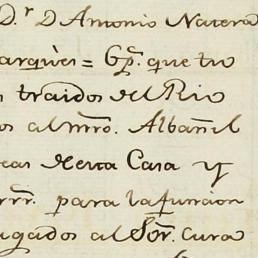 D.r D Antonio Natera
arquès = 6p.s que tu
traidos del Rio
os al mro. Albañil
eas de esta Casa y
rrr. para la funcion
ugados al Sor. cura